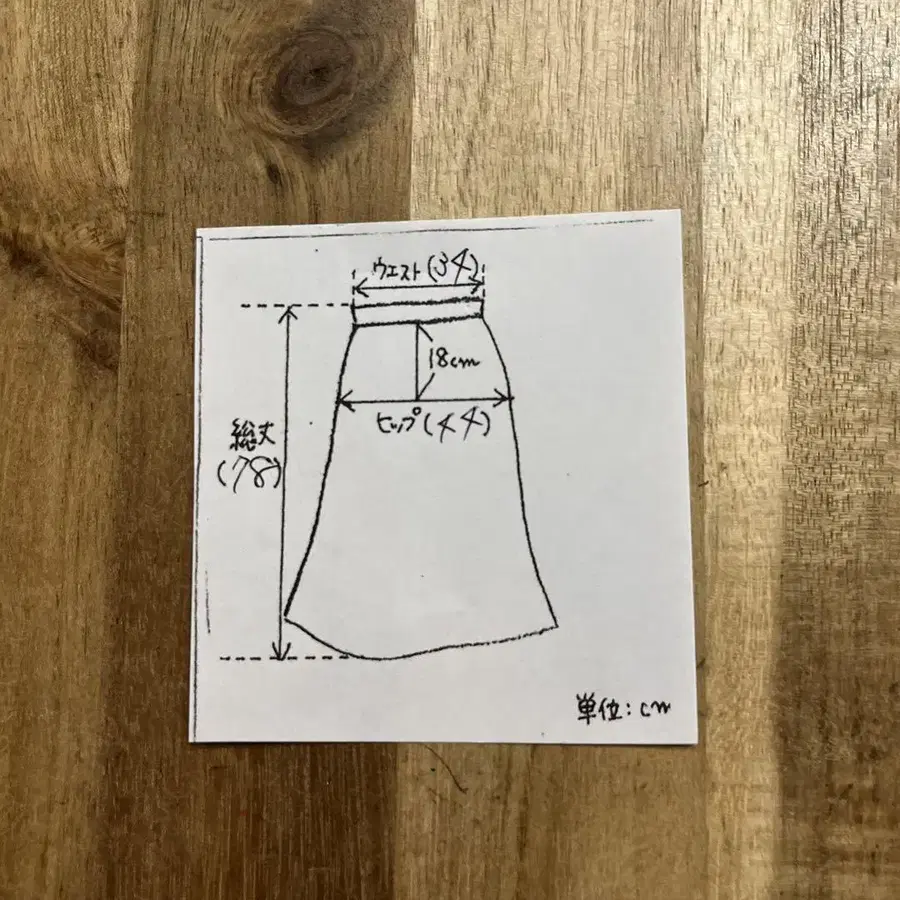 ウエスト(34)
18cm
ヒップ(44)
総丈
(78)
単位:cm